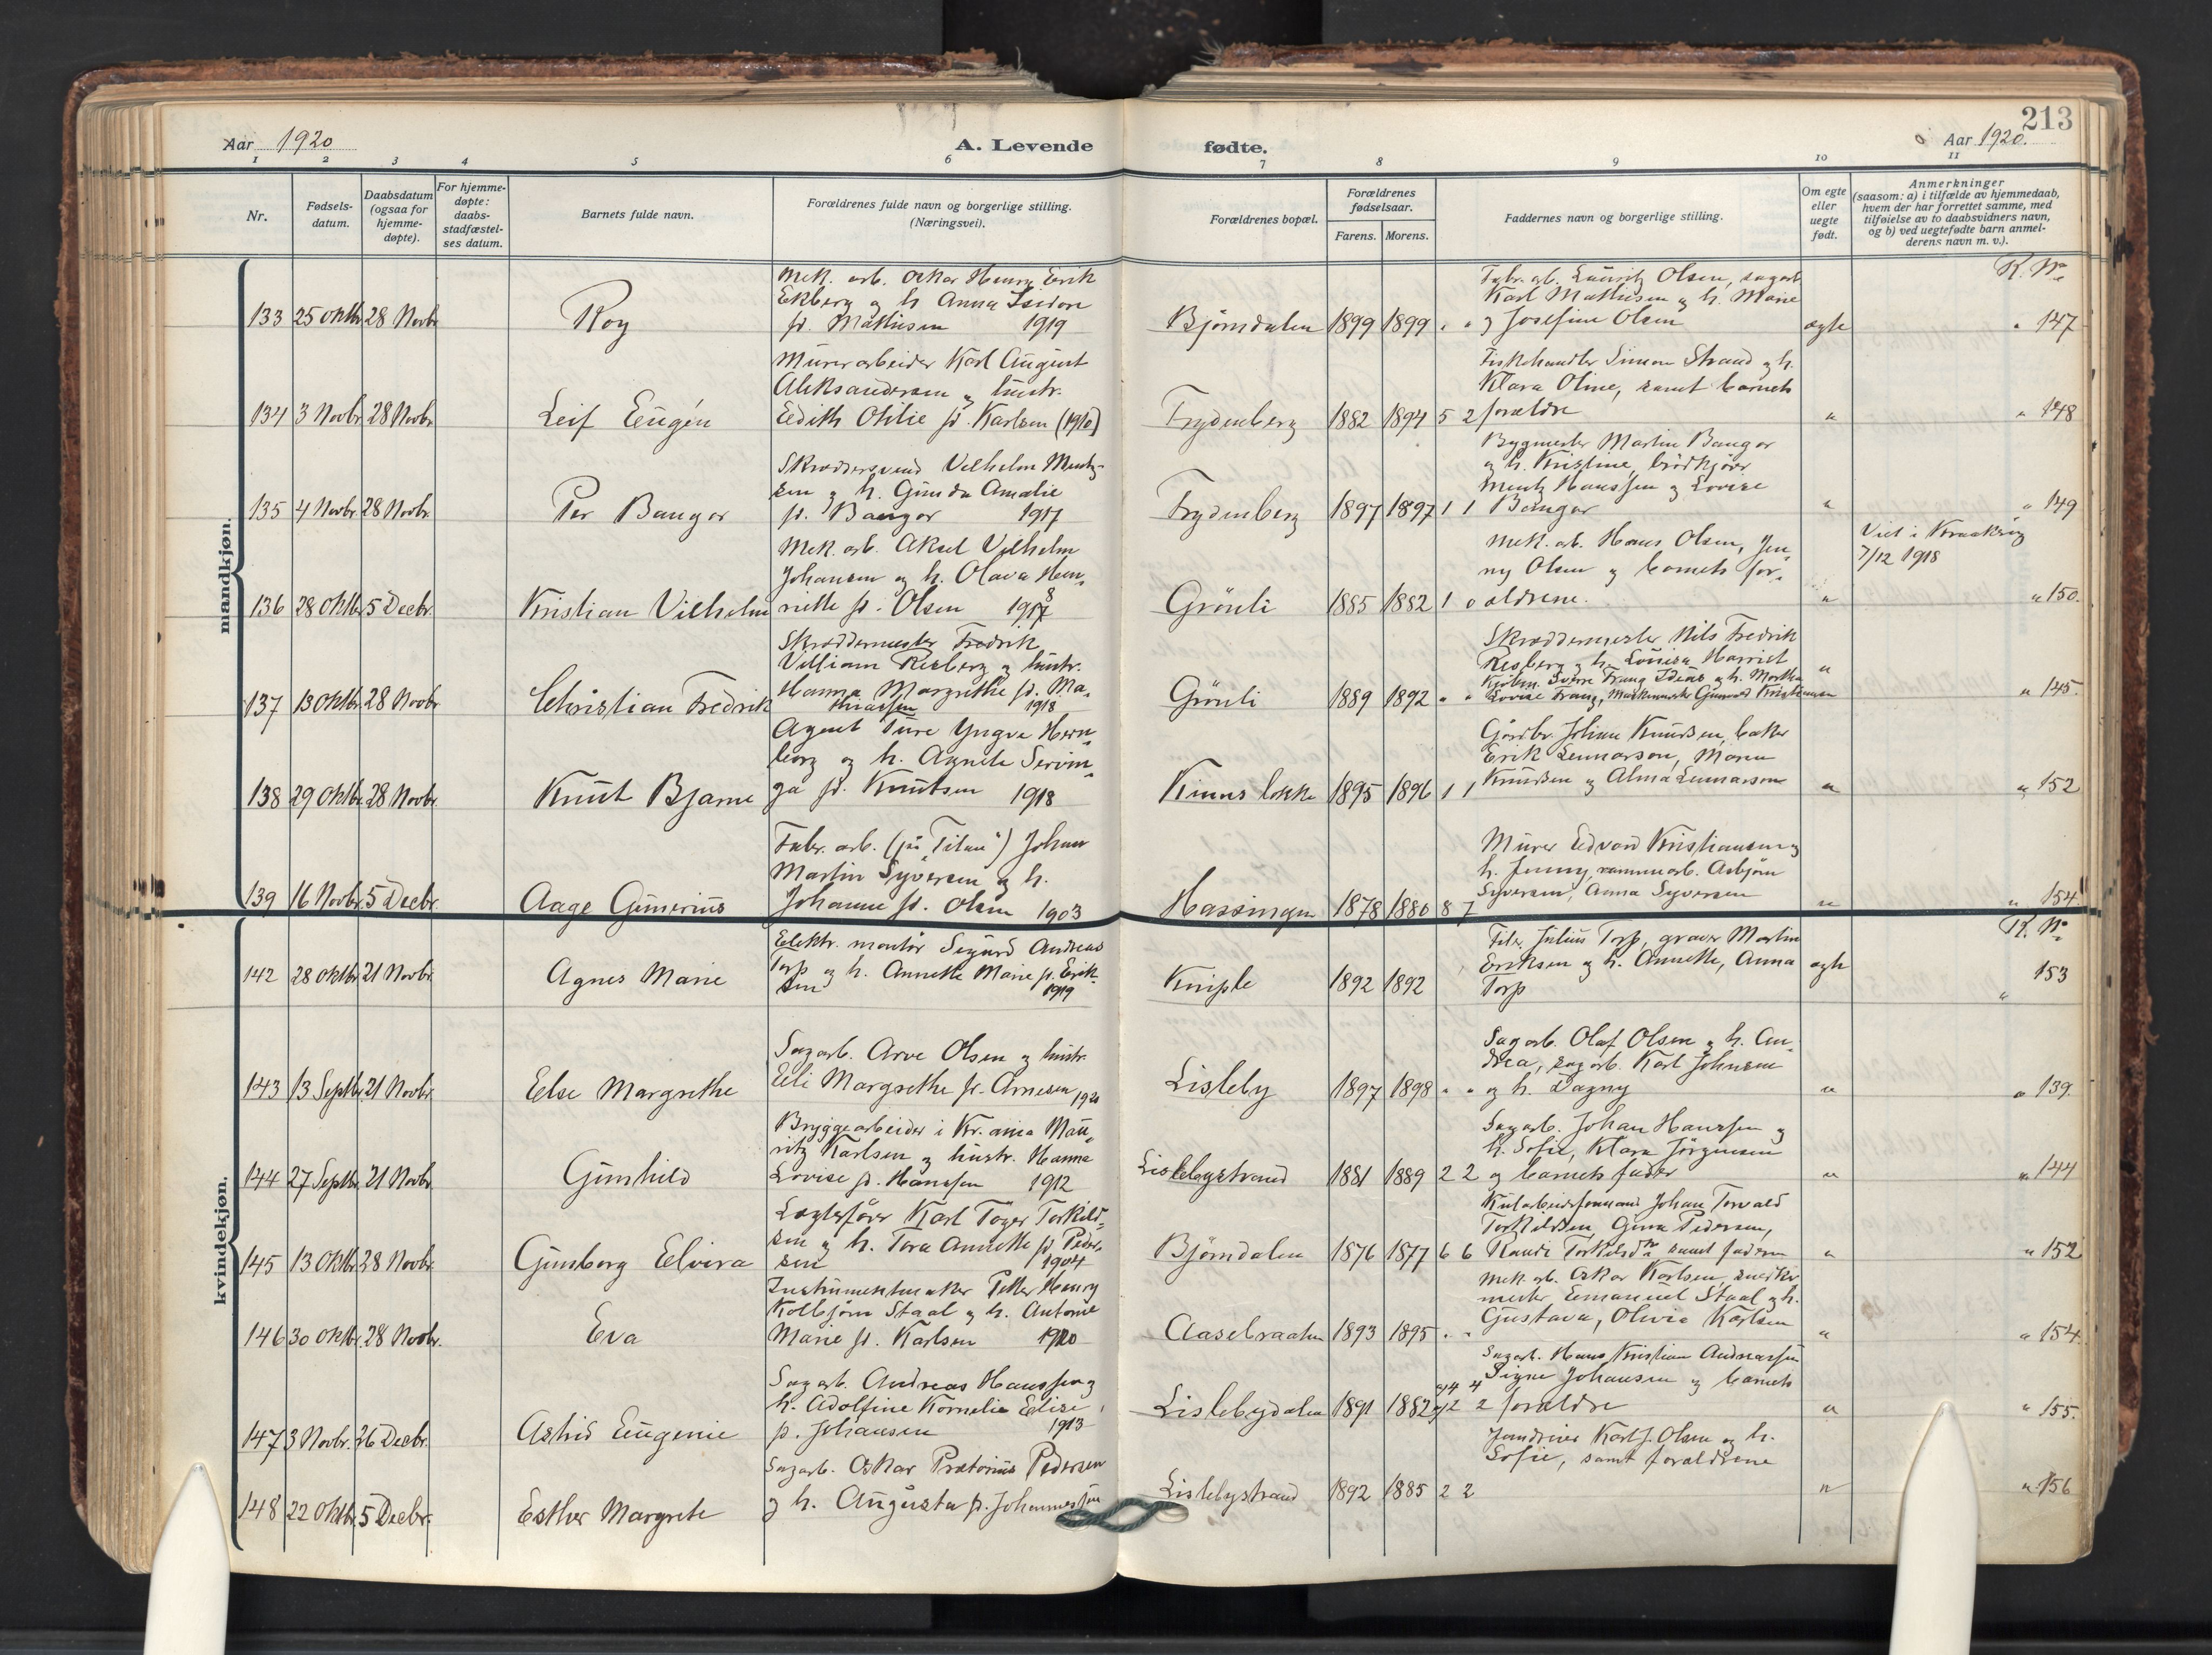 213
Aar 1920
A. Levende
fødte.
Aar 1920.
1 2 3 4 5 6 7 8 9 10 11
Nr.
Fødsels-
datum.
Daabsdatum
(ogsaa for
hjemme-
døpte).
For hjemme-
døpte:
daabs-
stadfæstel-
ses datum.
Barnets fulde navn.
Forældrenes fulde navn og borgerlige stilling.
(Næringsvei).
Forældrenes bopæl.
Forældrenes
fødselsaar.
Farens. Morens.
Faddernes navn og borgerlige stilling.
Om egte
eller
uegte
født.
Anmerkninger
(saasom: a) i tilfælde av hjemmedaab,
hvem der har forrettet samme, med
tilføielse av to daabsvidners navn,
og b) ved uegtefødte barn anmel-
derens navn m. v.).
mandkjøn.
K. No
133 25 Oktbr 28 Novbr Roy
Mek. arb. Oskar Henry Erik
Ekberg og h. Anna Isidore
fd. Mathisen 1919
Bjørndalen 1899 1899 " "
Fabr. arb. Lauritz Olsen, sagarb
Karl Mathisen og h. Marie
og Josefine Olsen
ægte " 147
134 3 Novbr. 28 Novbr. Leif Eugén
Murerarbeider Karl August
Aleksandersen og hustr.
Edith Otilie fd. Karlsen (1910)
Frydenberg 1882 1894 5 2
Fiskehandler Simon Strand og h.
Klara Oline, samt barnets
forældre
" " 148
135 4 Novbr. 28 Novbr. Per Bangor
Skræddersvend Vilhelm Mentz-
sen og h. Gunda Amalie
fd. Bangor 1917
Frydenberg 1897 1897 1 1
Bygmester Martin Bangor
og h. Kristine, brødkjører
Mentz Hanssen og Lovise
Bangor
" " 149
136 28 Oktbr. 5 Decbr. Kristian Vilhelm
Mek. arb. Aksel Vilhelm
Johansen og h. Olava Hen-
riette fd. Olsen 1917 8
Grönli 1885 1882 1 0
Mek. arb. Hans Olsen, Jen-
ny Olsen og barnets for-
ældrene.
Viet i Kraakerøy
7/12 1918
" " 150.
137 13 Oktbr. 28 Novbr. Christian Fredrik
Skræddermester Fredrik
Villiam Risberg og hustr.
Hanna Margrethe fd. Ma-
thiassen 1918
Grönli 1889 1892 " "
Skræddermester Nils Fredrik
Risberg og h. Louisa Harriet
Lovise Franz, Gunvod Kristensen
" " 145.
138 29 Oktbr. 28 Novbr. Knut Bjarne
Agent Ture Yngve Hern-
berg og h. Agnete Servin-
ga fd. Knutsen 1918
1895 1896 1 1
Gårdbr. Johan Knudsen, baker
Erik Lennarson, Maren
Knudsen og Alma Lennarson
" " 152
139 16 Novbr. 5 Decbr. Aage Gunerius
Fabr. arb. (på "Titan") Johan
Martin Syversen og h.
Johanne fd. Olsen 1903
Hassingen 1878 1880 8 7
Murer Edvard Kristiansen og
h. Jenny, rammearb. Asbjørn
Syversen, Anna Syversen
" " 154
kvindekjøn.
K. No
142 28 Oktbr. 21 Novbr. Agnes Marie
Elektr. montør Sigurd Andreas
Torp og h. Annette Marie fd. Erik-
sen 1919
Kniple 1892 1892
Filer Julius Torp, graver Martin
Eriksen og h. Annette, Anna
Torp
ægte " 153
143 13 Septbr. 21 Novbr. Else Margrethe
Sagarb. Arve Olsen og hustr.
Elli Margrethe fd. Arnesen 1920
Lisleby 1897 1898 " "
Sagarb. Olaf Olsen og h. An-
drea, sagarb. Karl Johnsen
og h. Dagny
" " 139.
144 27 Septbr. 21 Novbr. Gunhild
Bryggearbeider i Kr.ania Mau-
ritz Karlsen og hustr. Hanna
Lovise fd. Hanssen 1912
Lislebystrand 1881 1889 2 2
Sagarb. Johan Hanssen og
h. Sofie, Klara Jörgensen
og barnets fader
" " 144
145 13 Oktbr. 28 Novbr. Gunborg Elvira
Lægterfører Karl Töger Torkild-
sen og h. Tora Annette fd. Peder-
sen 1904
Bjørndalen 1876 1877 6 6
Johan Torvald
Torkildsen, Gina Pedersen,
Randi Torkildsn samt faderen
" " 152
146 30 Oktbr. 28 Novbr. Eva
Instrumentmaker Petter Henry
Kolbjørn Staal og h. Antonie
Marie fd. Karlsen 1920
Aasebraaten 1893 1895 " "
Mek. arb. Oskar Karlsen, snedker
mester Emanuel Staal og h.
Gustava, Olivia Karlsen
" " 154.
147 3 Novbr. 26 Decbr. Astrid Eugenie
Sagarb. Andreas Hanssen og
h. Adolfine Kornelia Elise
fd. Johansen 1913
Lislebydalen 1891 1882 4 4 2 2
Sagarb. Hans Kristian Andreassen
Signe Johansen og barnets
forældre
" " 155.
148 22 Oktbr. 5 Decbr. Esther Margrete
Sagarb. Oskar Prætorius Pedersen
og h. Augusta fd. Johannessen
Lislebystrand 1892 1885 2 2
Karl J. Olsen og h.
Sofie, samt forældrene
" " 156